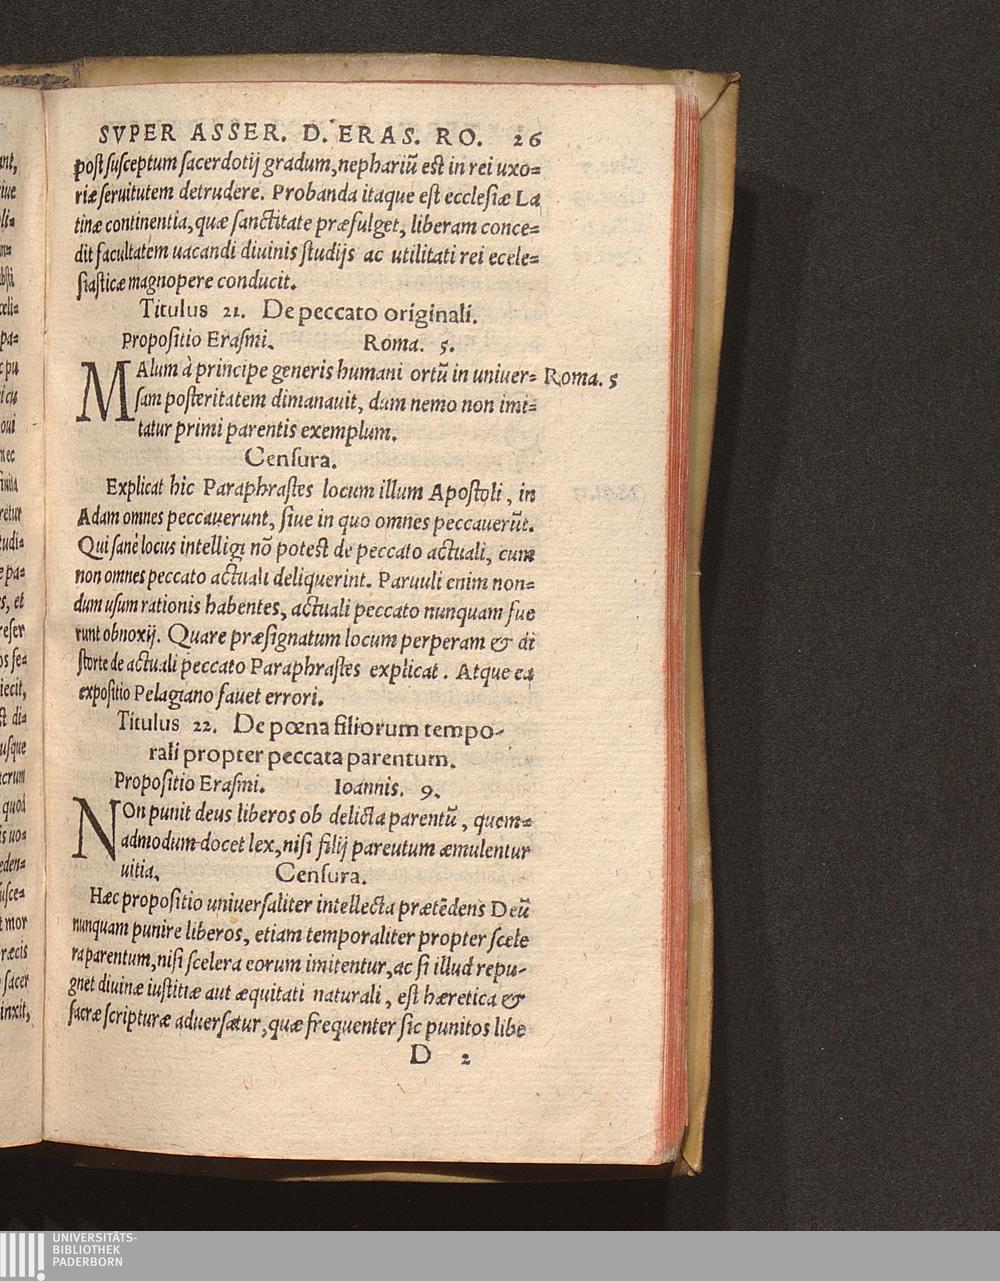 SVPER ASSER. D. ERAS. RO. 26
post susceptum sacerdotij gradum, nephariū est in rei uxo=
riæ seruitutem detrudere. Probanda itaque est ecclesiæ La
tinæ continentia, quæ sanctitate præfulget, liberam conce=
dit facultatem uacandi diuinis studijs ac utilitati rei ecele=
siasticæ magnopere conducit.
Titulus 21. De peccato originali.
Propositio Erasmi. Roma. 5.
MAlum à principe generis humani ortū in uniuer= Roma. 5
sam posteritatem dimanauit, dum nemo non imi=
tatur primi parentis exemplum.
Censura.
Explicat hic Paraphrastes locum illum Apostoli, in
Adam omnes peccauerunt, siue in quo omnes peccauerūt.
Qui sanè locus intelligi nō potest de peccato actuali, cum
non omnes peccato actuali deliquerint. Paruuli enim non=
dum usum rationis habentes, actuali peccato nunquam fue
runt obnoxij. Quare præsignatum locum perperam & di
storte de actuali peccato Paraphrastes explicat. Atque ea
expositio Pelagiano fauet errori.
Titulus 22. De pœna filiorum tempo-
rali propter peccata parentum.
Propositio Erasmi. Ioannis. 9.
NOn punit deus liberos ob delicta parentū, quem=
admodum docet lex, nisi filij pareutum æmulentur
uitia. Censura.
Hæc propositio uniuersaliter intellecta prætēdens Deū
nunquam punire liberos, etiam temporaliter propter scele
ra parentum, nisi scelera eorum imitentur, ac si illud repu-
gnet diuinæ iustitiæ aut æquitati naturali, est hæretica &
sacræ scripturæ aduersatur, quæ frequenter sic punitos libe
D 2
UNIVERSITÄTS-
BIBLIOTHEK
PADERBORN